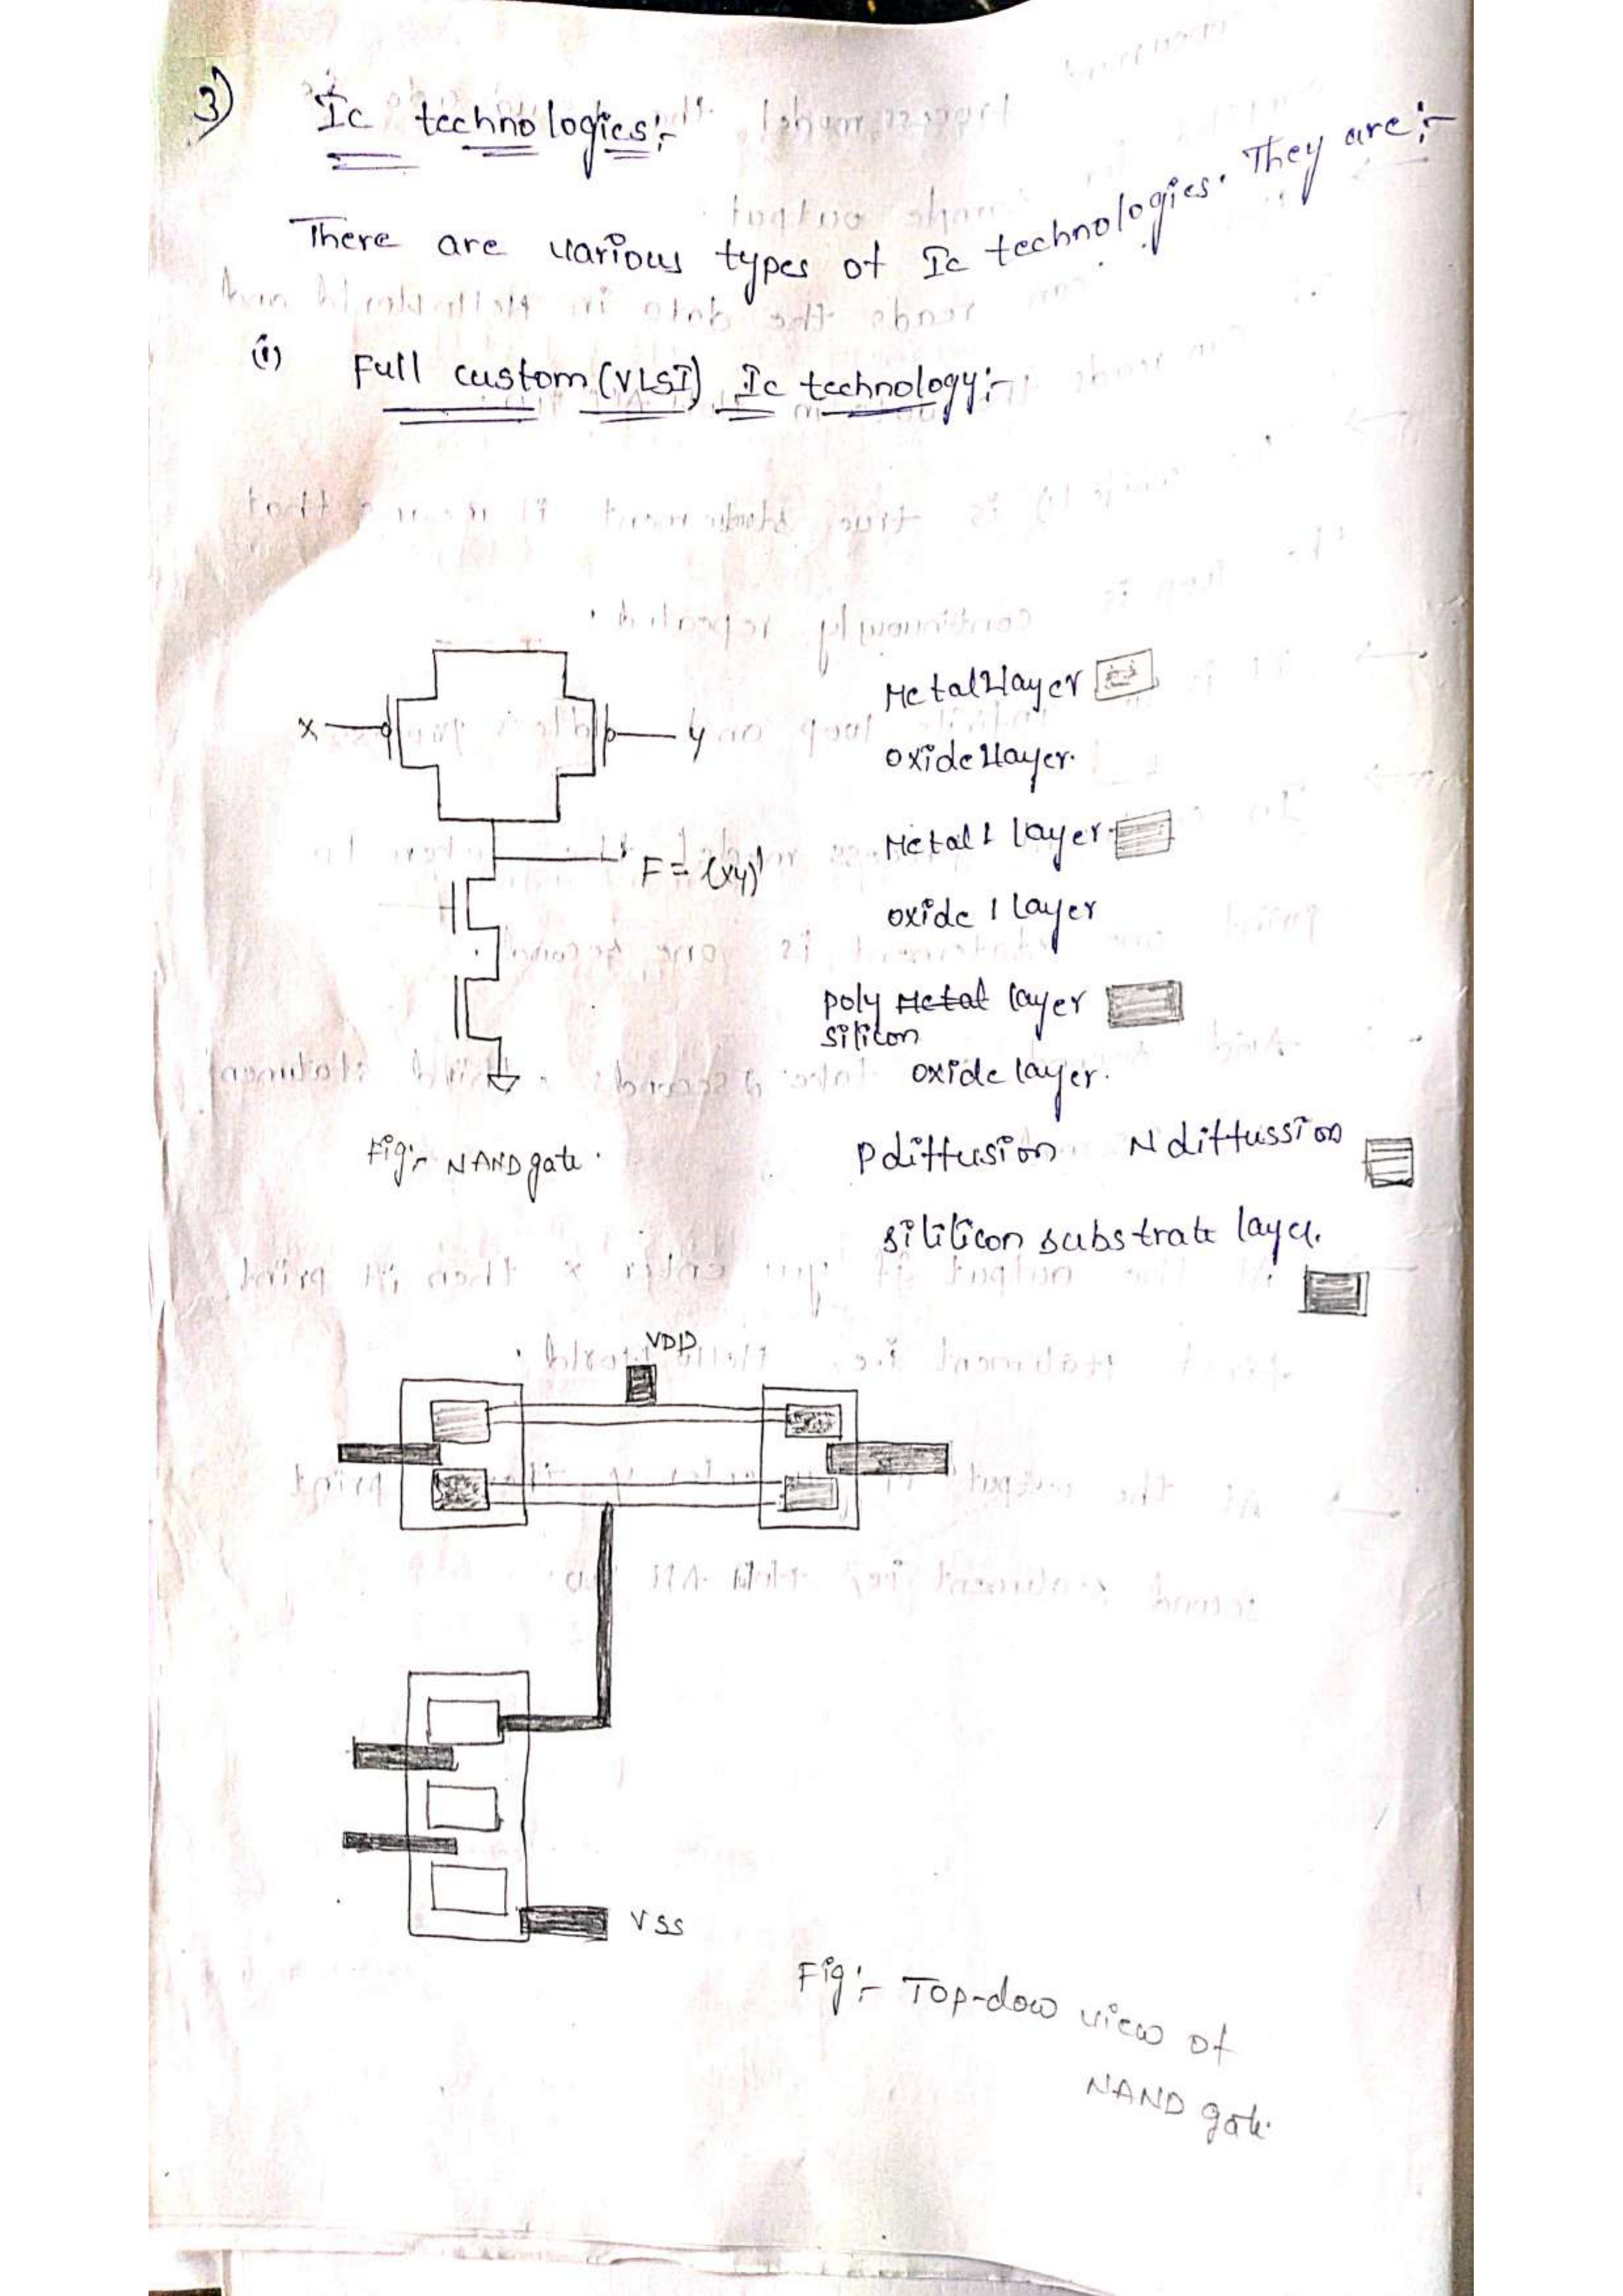 3) Ic technologies:-
There are various types of Ic technologies. They are:-
(i) Full custom (VLSI) Ic technology:-
Metal2layer
oxide2layer.
x
y
Metal1 layer
F = (xy)'
oxide 1 layer
poly Metal layer
silicon
oxide layer.
Fig:- NAND gate.
Pdiffusion Ndiffussion
sililicon substrate layer.
VDD
VSS
Fig:- Top-dow view of
NAND gate.